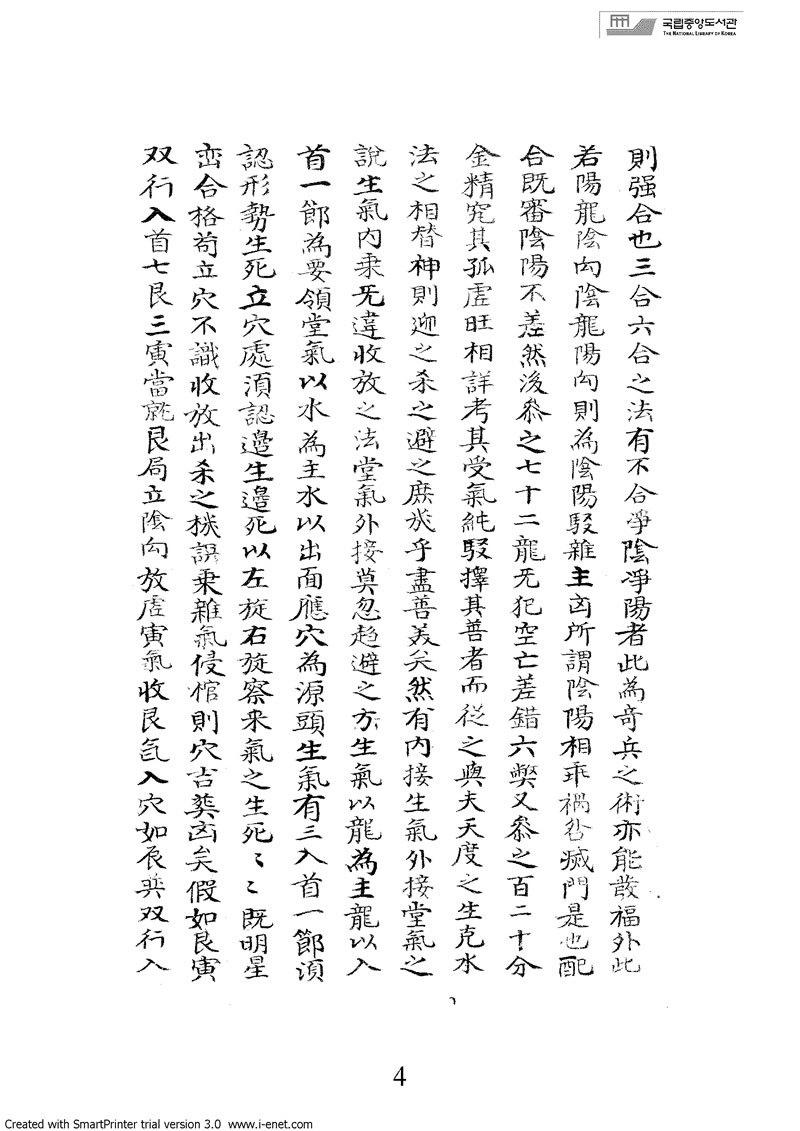 국립중앙도서관
THE NATIONAL LIBRARY OF KOREA
則强合也三合六合之法有不合爭陰凈陽者此為奇兵之術亦能發福外此
若陽龍陰向陰龍陽向則為陰陽駁雜主凶所謂陰陽相乖禍咎滅門是也配
合旣審陰陽不差然後叅之七十二龍旡犯空亡差錯六弊又叅之百二十分
金精究其孤虛旺相詳考其受氣純駁擇其善者而從之與夫天度之生克水
法之相替神則迎之杀之避之庶㳺乎盡善美矣然有內接生氣外接堂氣之
說生氣內乗旡違收放之法堂氣外接莫忽趍避之方生氣以龍為主龍以入
首一節為要領堂氣以水為主水以出面應穴為源頭生氣有三入首一節湏
認形勢生死立穴處湏認邊生邊死以左旋右旋察来氣之生死〻〻旣明星
峦合格苟立穴不識收放出杀之機誤乗雜氣侵棺則穴吉葬凶矣假如艮寅
双行入首七艮三寅當就艮局立陰向放虛寅氣收艮氣入穴如辰巽双行入
4
Created with SmartPrinter trial version 3.0 www.i-enet.com